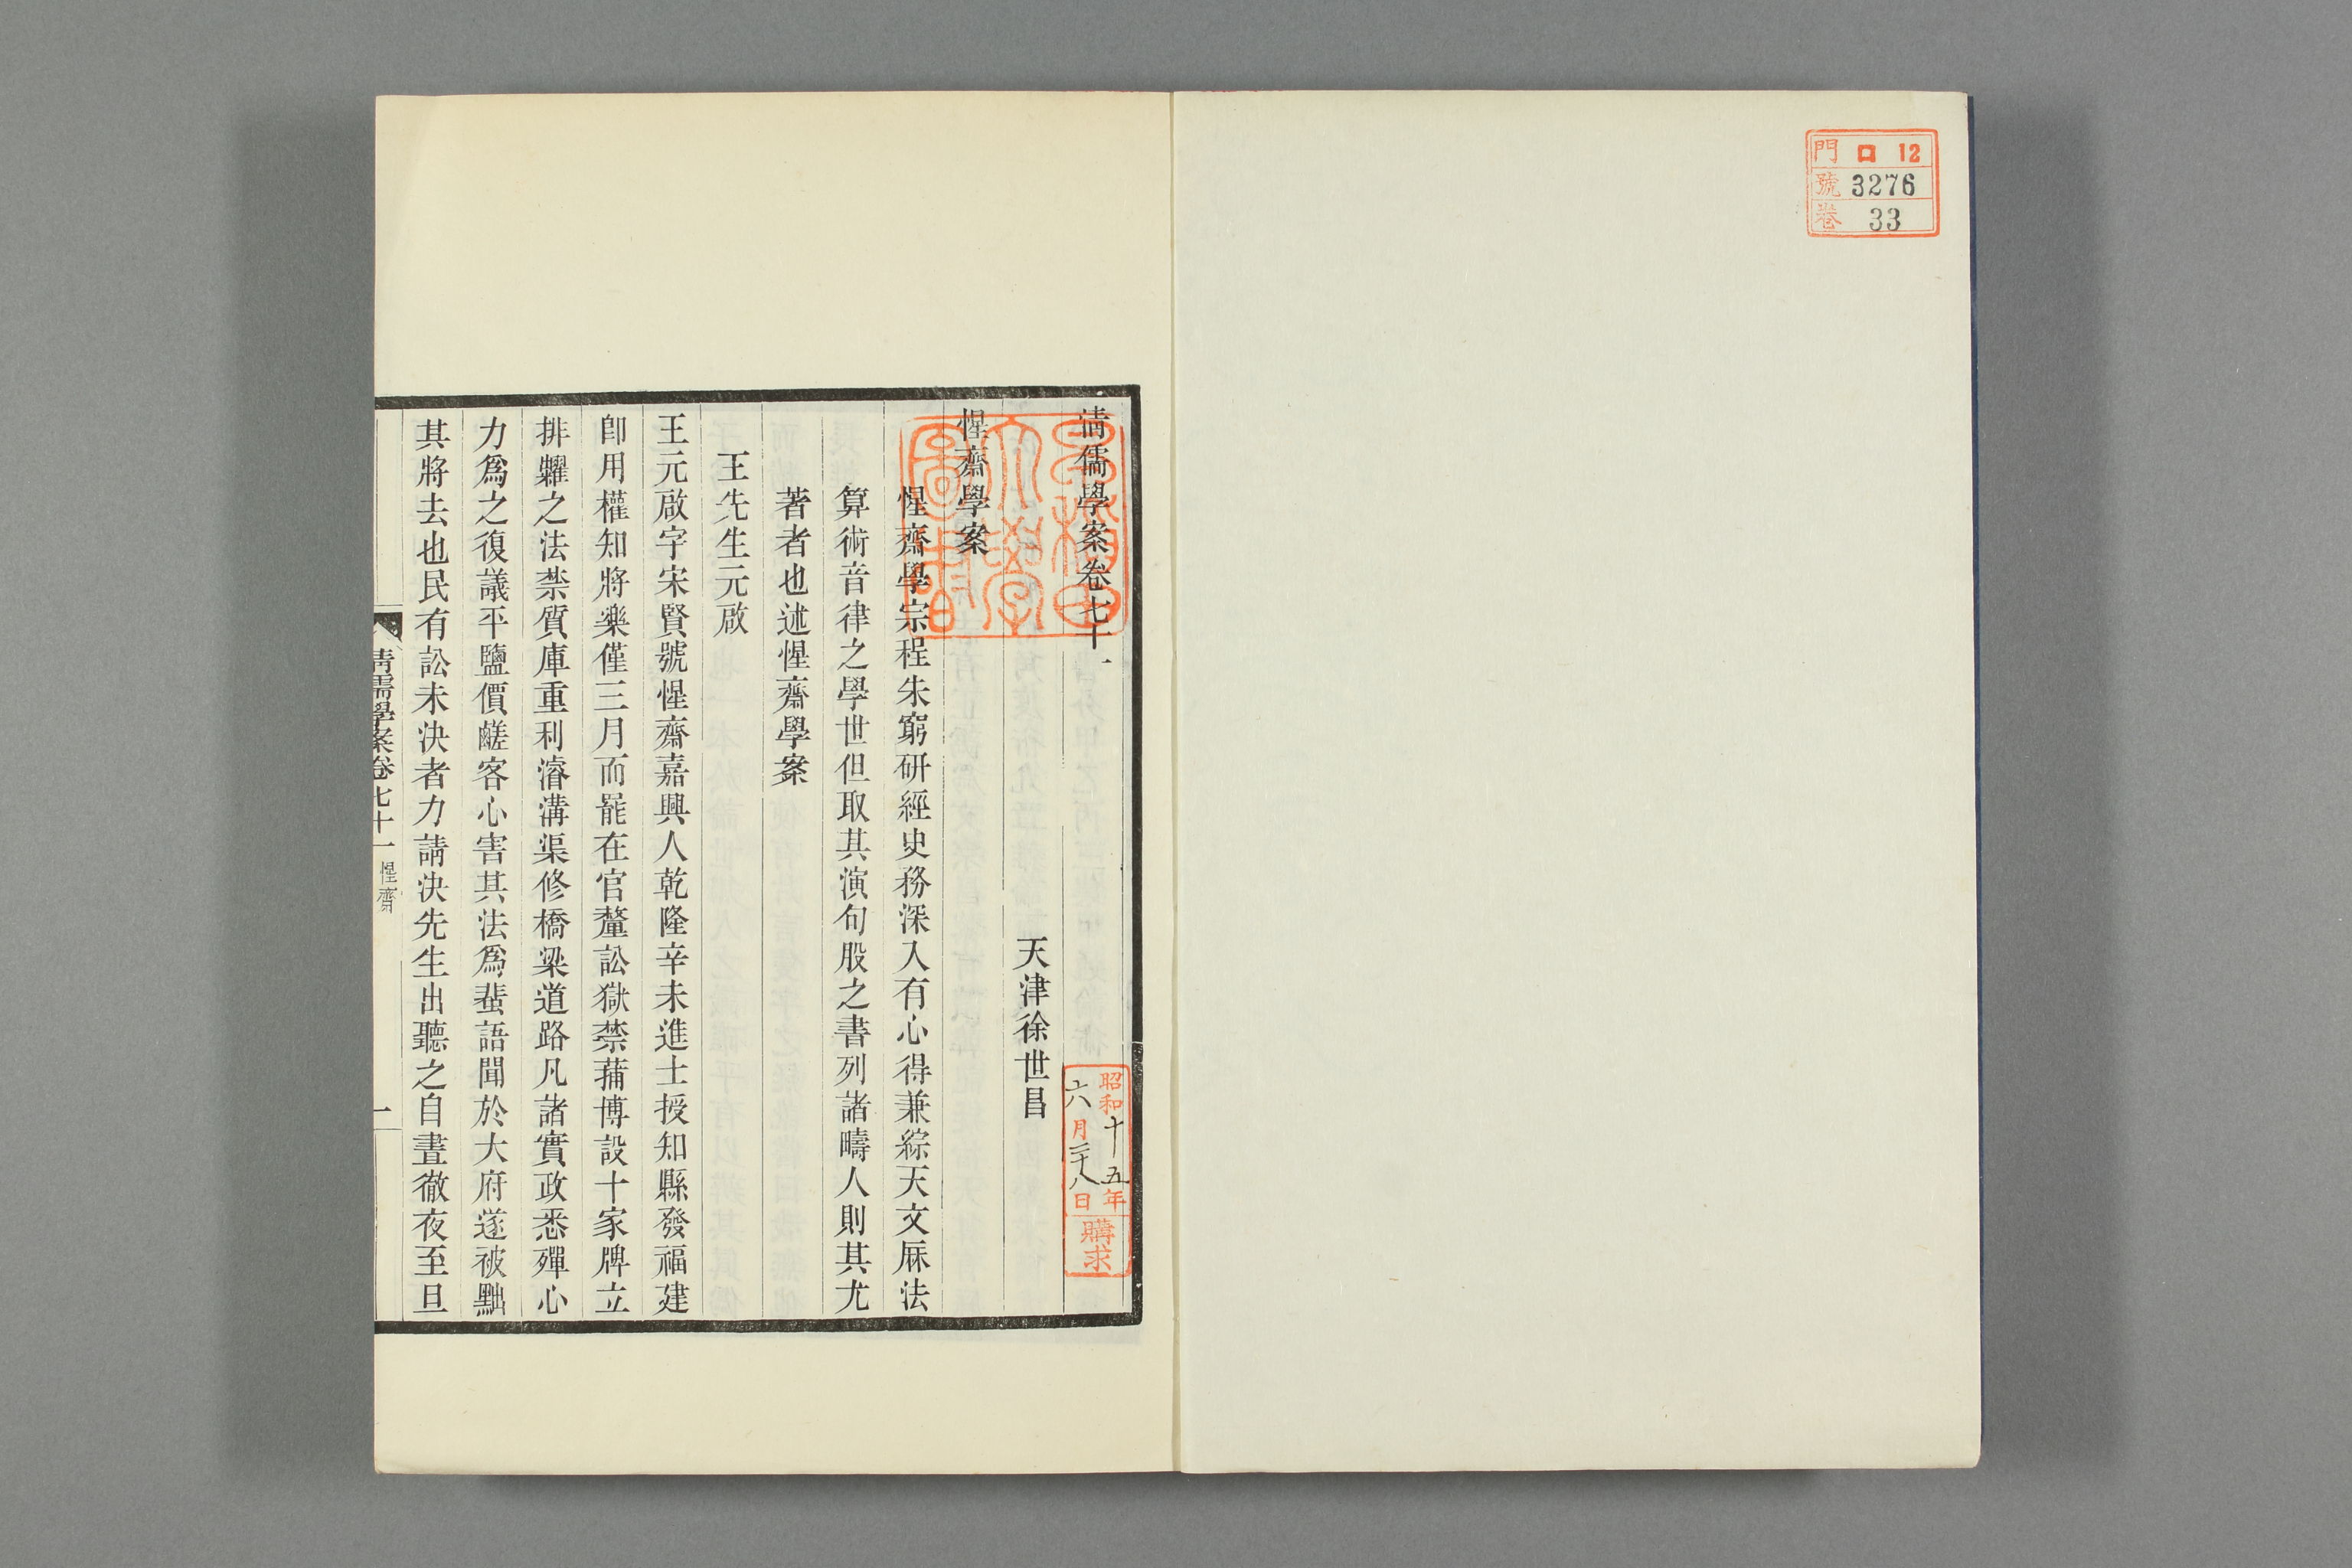 門 ロ 12
號 3276
卷 33
清儒學案卷七十一
天津徐世昌
惺齋學案
惺齋學宗程朱窮研經史務深入有心得兼綜天文厤法
算術音律之學世但取其演句股之書列諸疇人則其尤
著者也述惺齋學案
王先生元啟
王元啟字宋賢號惺齋嘉興人乾隆辛未進士授知縣發福建
卽用權知將樂僅三月而罷在官釐訟獄禁蒱博設十家牌立
排糶之法禁質庫重利濬溝渠修橋梁道路凡諸實政悉殫心
力爲之復議平鹽價鹺客心害其法爲蜚語聞於大府遂被黜
其將去也民有訟未決者力請決先生出聽之自晝徹夜至旦
清儒學案卷七十一 惺齋 一
早稻田
大學
圖書
昭和十五年
六月二十八日
購求